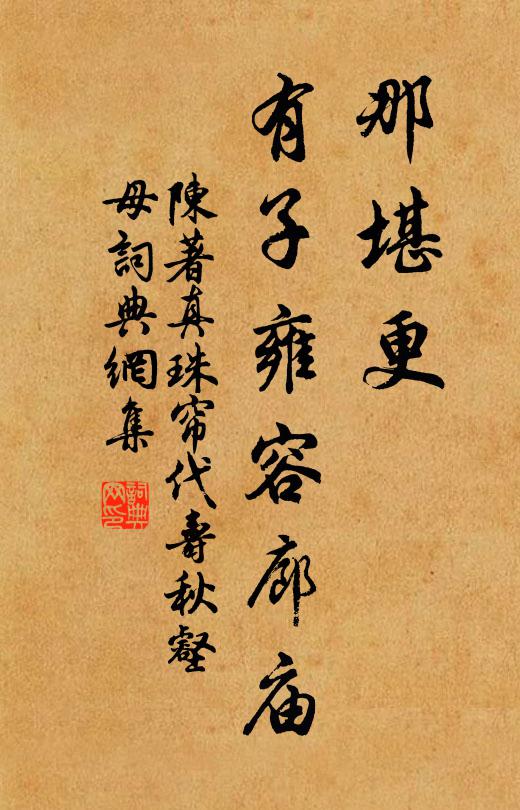 那堪更
有子雍容廊庙
陳著真珠帘代壽秋壑
母詞典網集
詞典
网印